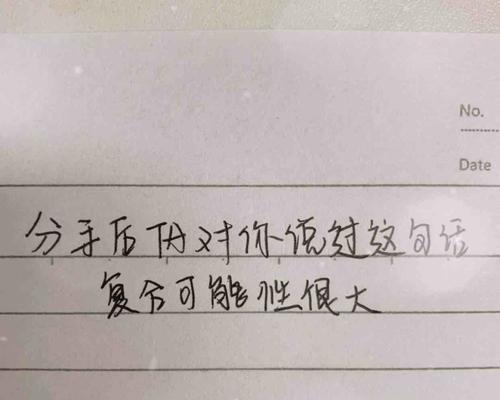 No.
Date
分手后TA对你说过这句话
复合可能性很大